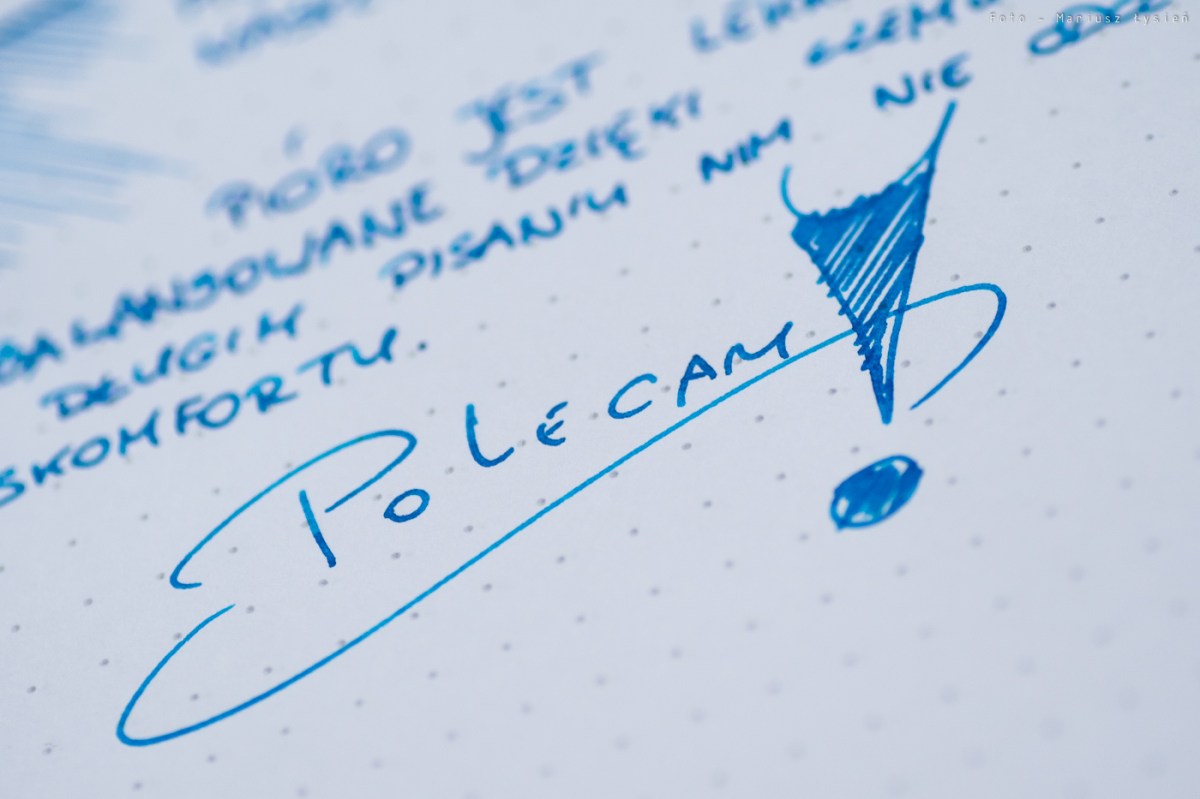 Foto - Mariusz Łysień
PIÓRO JEST
BALANSOWANE DZIĘKI CZEMU
DŁUGIM PISANIU NIM NIE
SKOMFORTU.
POLECAM!